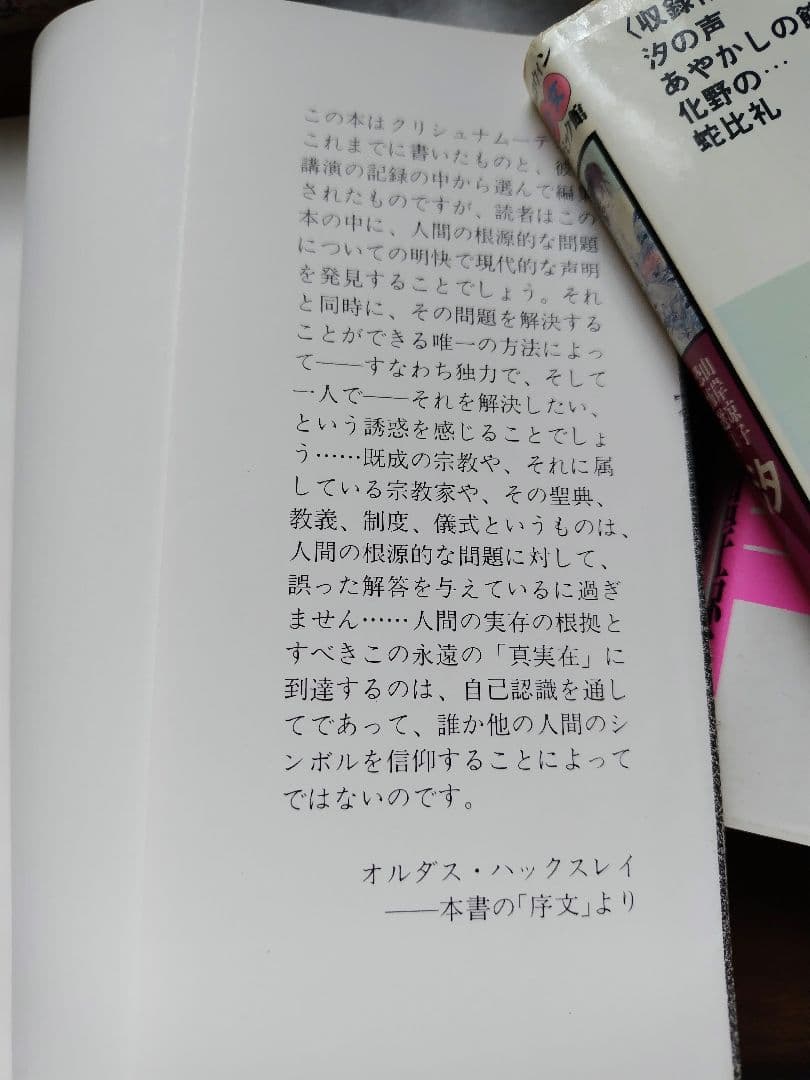 この本はクリシュナムーテ
これまでに書いたものと、彼
講演の記録の中から選んで編集
されたものですが、読者はこの
本の中に、人間の根源的な問題
についての明快で現代的な声明
を発見することでしょう。それ
と同時に、その問題を解決する
ことができる唯一の方法によっ
て——すなわち独力で、そして
一人で——それを解決したい、
という誘惑を感じることでしょ
う……既成の宗教や、それに属
している宗教家や、その聖典、
教義、制度、儀式というものは、
人間の根源的な問題に対して、
誤った解答を与えているに過ぎ
ません……人間の実存の根拠と
すべきこの永遠の「真実在」に
到達するのは、自己認識を通し
てであって、誰か他の人間のシ
ンボルを信仰することによって
ではないのです。
オルダス・ハックスレイ
——本書の「序文」より
〈収録
汐の声
あやかしの
化野の…
蛇比礼
汐